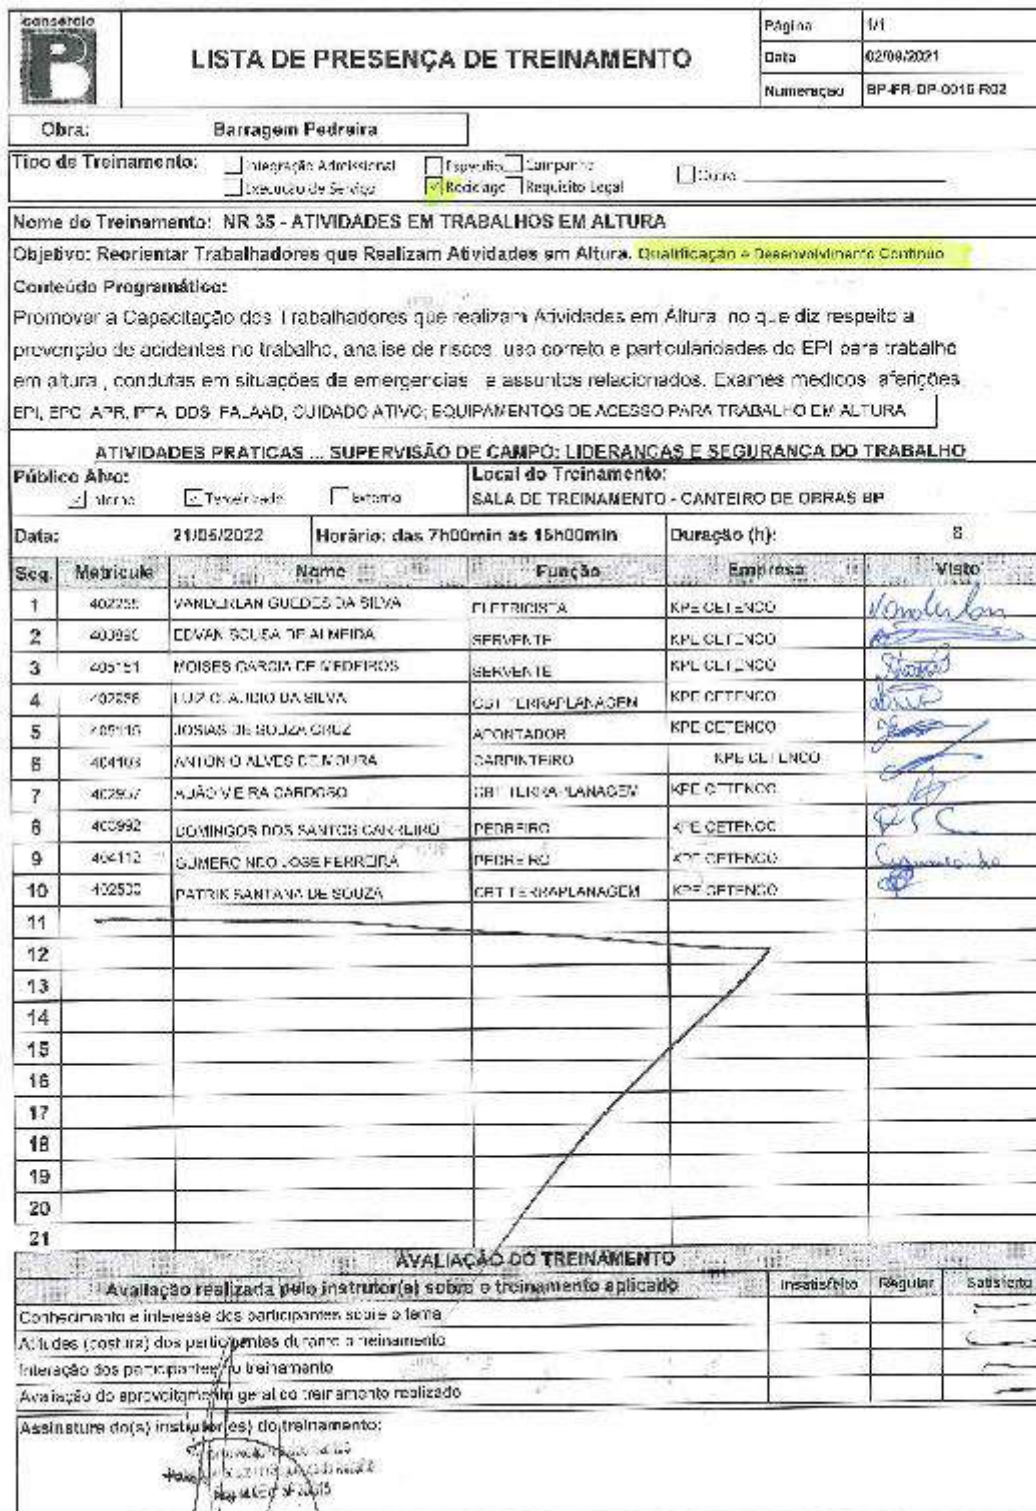 consórcio
LISTA DE PRESENÇA DE TREINAMENTO
Página 1/1
Data 02/08/2021
Numeração BP-FR-DP-0016-R02
Obra: Barragem Pedreira
Tipo de Treinamento: Integração Admissional Específico Campanha Outro
Execução de Serviço Reciclage Requisito Legal
Nome do Treinamento: NR 35 - ATIVIDADES EM TRABALHOS EM ALTURA
Objetivo: Reorientar Trabalhadores que Realizam Atividades em Altura. Qualificação e Desenvolvimento Contínuo
Conteúdo Programático:
Promover a Capacitação dos Trabalhadores que realizam Atividades em Altura no que diz respeito a
prevenção de acidentes no trabalho, analise de riscos, uso correto e particularidades do EPI para trabalho
em altura , condutas em situações de emergencias e assuntos relacionados. Exames medicos, aferições
EPI, EPC, APR, PTA, DDS, FALAAD, CUIDADO ATIVO; EQUIPAMENTOS DE ACESSO PARA TRABALHO EM ALTURA
ATIVIDADES PRATICAS ... SUPERVISÃO DE CAMPO: LIDERANÇAS E SEGURANÇA DO TRABALHO
Público Alvo: Local do Treinamento:
Interno Terceirizado Externo SALA DE TREINAMENTO - CANTEIRO DE OBRAS BP
Data: 21/05/2022 Horário: das 7h00min as 15h00min Duração (h): 8
Seq. Matricula Nome Função Empresa Visto
1 VANDERLAN GUEDES DA SILVA ELETRICISTA KPE CETENCO Vanderlan
2 EDVAN SOUSA DE ALMEIDA SERVENTE KPE CETENCO
3 405151 MOISES GARCIA DE MEDEIROS SERVENTE KPE CETENCO
4 LUIZ CLAUDIO DA SILVA CBT TERRAPLANAGEM KPE CETENCO
5 JOSIAS DE SOUZA CRUZ APONTADOR KPE CETENCO
6 404103 ANTONIO ALVES DE MOURA CARPINTEIRO KPE CETENCO
7 402957 VIEIRA CARDOSO CBT TERRAPLANAGEM KPE CETENCO
8 DOMINGOS DOS SANTOS CARREIRO PEDREIRO KPE CETENCO
9 404112 GUMERCINDO JOSE FERREIRA PEDREIRO KPE CETENCO
10 402500 PATRIK SANTANA DE SOUZA CBT TERRAPLANAGEM KPE CETENCO
11
12
13
14
15
16
17
18
19
20
21
AVALIAÇÃO DO TREINAMENTO
Avaliação realizada pelo instrutor(a) sobre o treinamento aplicado Insatisfeito Regular Satisfeito
Conhecimento e interesse dos participantes sobre o tema
Atitudes (postura) dos participantes durante o treinamento
Interação dos participantes no treinamento
Avaliação do aproveitamento geral do treinamento realizado
Assinatura do(s) instrutor(es) do treinamento: